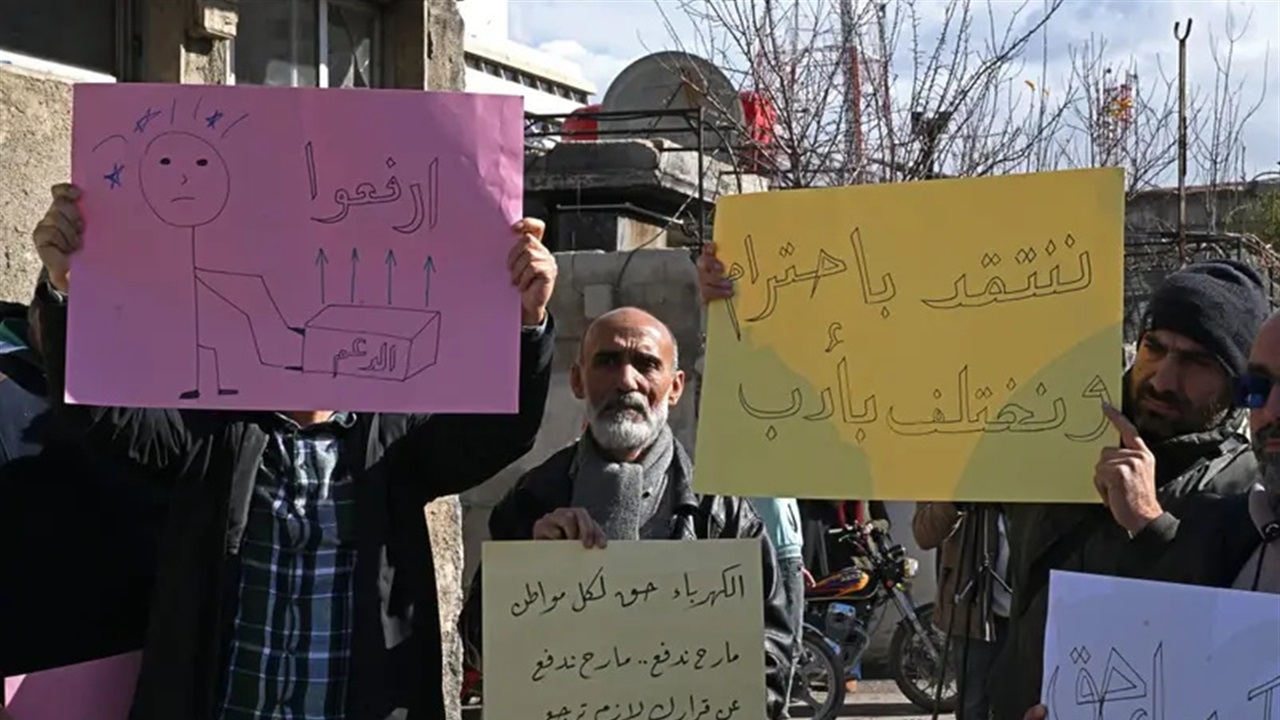 ارفعوا
الدعم
ننتقد باحترام
ونختلف بأدب
الكهرباء حق لكل مواطن
مارح ندفع.. مارح ندفع
عن قرارك لازم ترجع